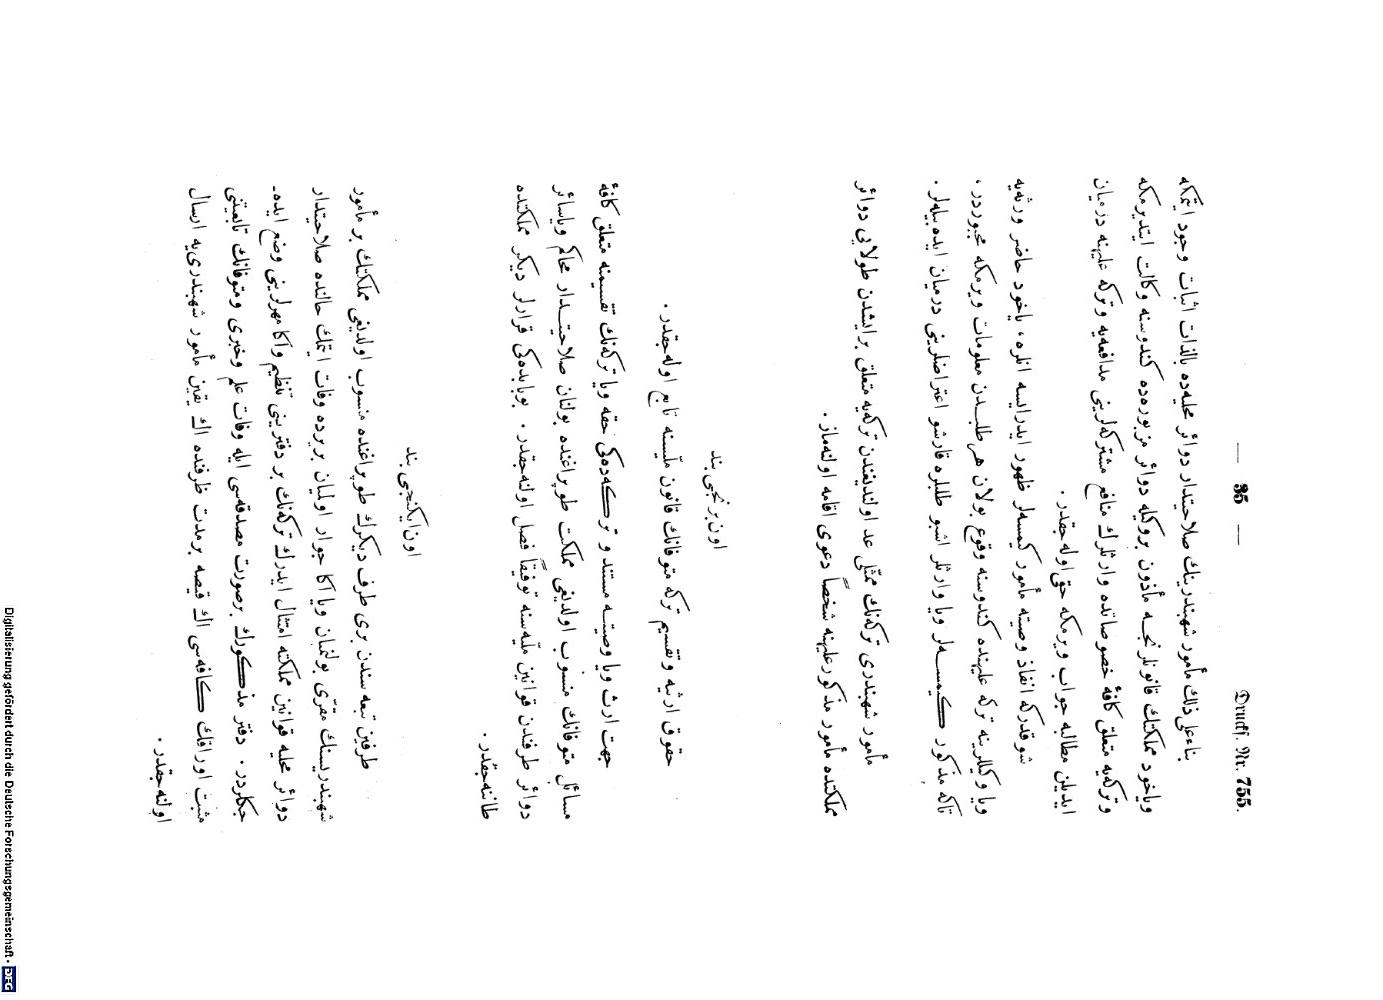 — 35 —
Druckf. Nr. 755.
بناءً على ذلك مأمور شهبندرينك صلاحيتدار دوائر محليه‌ده بالذات اثبات وجود ايتمكه
وياخود مملكتك قانونلرنجه مأذون بروكيله دوائر مزبوره‌ده كندوسنه وكالت ايتديرمكه
وتركه‌يه متعلق كافهٔ خصوصاتده وارثلرك منافع مشتركه‌لرينى مدافعه‌يه وتركه عليهنه درميان
ايديلن مطالبه جواب ويرمكه حقى اوله‌جقدر .
شوقدركه انفاذ وصيته مأمور كيمسه‌لر ظهور ايدرايسه انلره، ياخود حاضر ورثه‌يه
ويا وكيللرينه تركه عليهنده كندوسنه وقوع بولان هر طلبدن معلومات ويرمكه مجبوردر .
تاكه مذكور كيمسه‌لر ويا وارثلر اشبو طلبلره قارشو اعتراضلرينى درميان ايده بيله‌لر .
مأمور شهبندرى تركه‌نك ممثلى عد اولنديغندن تركه‌يه متعلق برايشدن طولايى دوائر
مملكتده مأمور مذكور عليهنه شخصاً دعوى اقامه اولنه‌ماز .
اون برنجى بند
حقوق ارثيه وتقسيم تركه متوفانك قانون ملّيسنه تابع اوله‌جقدر .
جهت ارث ويا وصيته مستند و تركه‌ده‌كى حقه ويا تركه‌نك تقسيمنه متعلق كافهٔ
مسائل متوفانك منسوب اولديغى مملكت طوپراغنده بولنان صلاحيتدار محاكم وياسائر
دوائر طرفندن قوانين ملّيه‌سنه توفيقاً فصل اولنه‌جقدر . بوبابده‌كى قرارلر ديكر مملكتده
طاننه‌جقدر .
اون ايكنجى بند
طرفين تبعه‌سندن برى طرف ديكرك طوپراغنده منسوب اولديغى مملكتك بر مأمور
شهبندريسنك مقرّى بولنميان ويا اكا جوار اولميان بريرده وفات ايتمك حالنده صلاحيتدار
دوائر محليه قوانين مملكته امتثال ايدرك تركه‌نك بر دفترينى تنظيم واكا مهرلرينى وضع ايده-
جكلردر . دفتر مذكورك برصورت مصدقه‌سى ايله وفات علم وخبرى ومتوفانك تابعيتنى
مثبت اوراقك كافه‌سى اك قيصه برمدت ظرفنده اك يقين مأمور شهبندرى‌يه ارسال
اولنه‌جقدر .
Digitalisierung gefördert durch die Deutsche Forschungsgemeinschaft - DFG